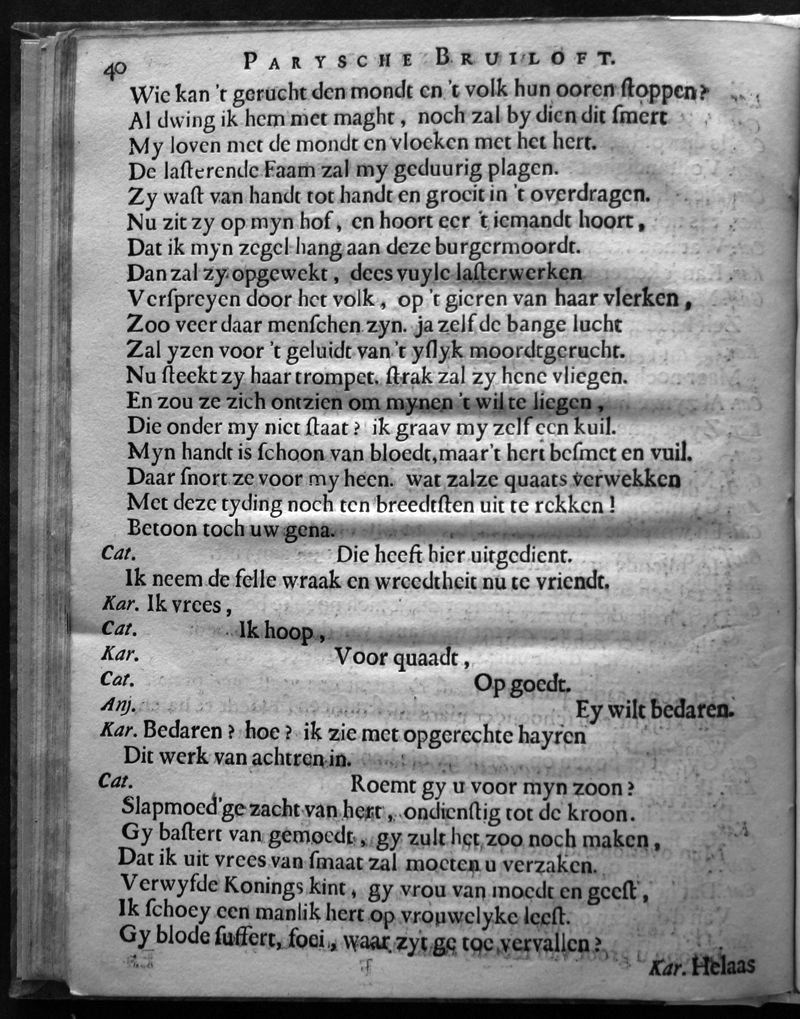 40 PARYSCHE BRUILOFT.
Wie kan 't gerucht den mondt en 't volk hun ooren ſtoppen?
Al dwing ik hem met maght, noch zal by dien dit ſmert
My loven met de mondt en vloeken met het hert.
De laſterende Faam zal my geduurig plagen.
Zy waſt van handt tot handt en groeit in 't overdragen.
Nu zit zy op myn hof, en hoort eer 't iemandt hoort,
Dat ik myn zegel hang aan deze burgermoordt.
Dan zal zy opgewekt, dees vuyle laſterwerken
Verſpreyen door het volk, op 't gieren van haar vlerken,
Zoo veer daar menſchen zyn. ja zelf de bange lucht
Zal yzen voor 't geluidt van 't yſlyk moordtgerucht.
Nu ſteekt zy haar trompet. ſtrak zal zy hene vliegen.
En zou ze zich ontzien om mynen 't wil te liegen,
Die onder my niet ſtaat? ik graav my zelf een kuil.
Myn handt is ſchoon van bloedt, maar 't hert beſmet en vuil.
Daar ſnort ze voor my heen. wat zalze quaats verwekken
Met deze tyding noch ten breedtſten uit te rekken!
Betoon toch uw gena.
Cat. Die heeft hier uitgedient.
Ik neem de felle wraak en wreedtheit nu te vriendt.
Kar. Ik vrees,
Cat. Ik hoop,
Kar. Voor quaadt,
Cat. Op goedt.
Anj. Ey wilt bedaren.
Kar. Bedaren? hoe? ik zie met opgerechte hayren
Dit werk van achtren in.
Cat. Roemt gy u voor myn zoon?
Slapmoed'ge zacht van hert, ondienſtig tot de kroon.
Gy baſtert van gemoedt, gy zult het zoo noch maken,
Dat ik uit vrees van ſmaat zal moeten u verzaken.
Verwyfde Konings kint, gy vrou van moedt en geeſt,
Ik ſchoey een manlik hert op vrouwelyke leeſt.
Gy blode ſuffert, foei, waar zyt ge toe vervallen?
Kar. Helaas